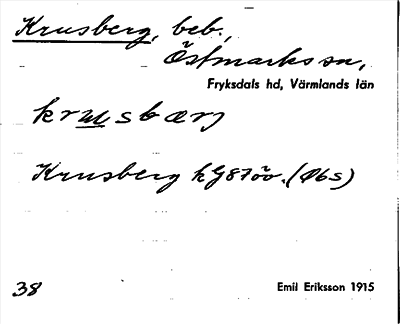 Krusberg, beb.,
Östmarks sn,
Fryksdals hd, Värmlands län
krusbærj
Krusberg kG87öv. (Obs)
38
Emil Eriksson 1915